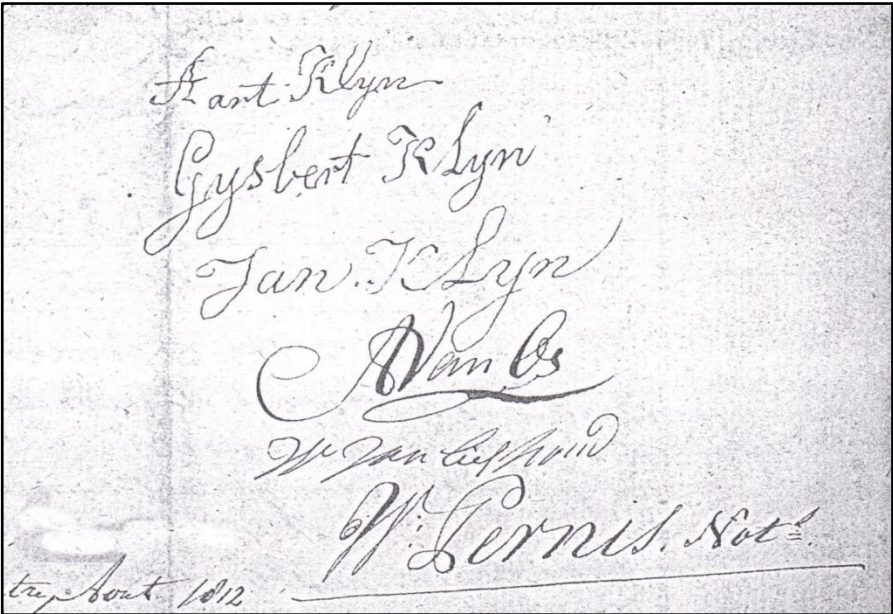 Aart Klyn
Gysbert Klyn
Jan Klyn
AVan Os
W Van
W. Pernis. Nots
Aout 1812